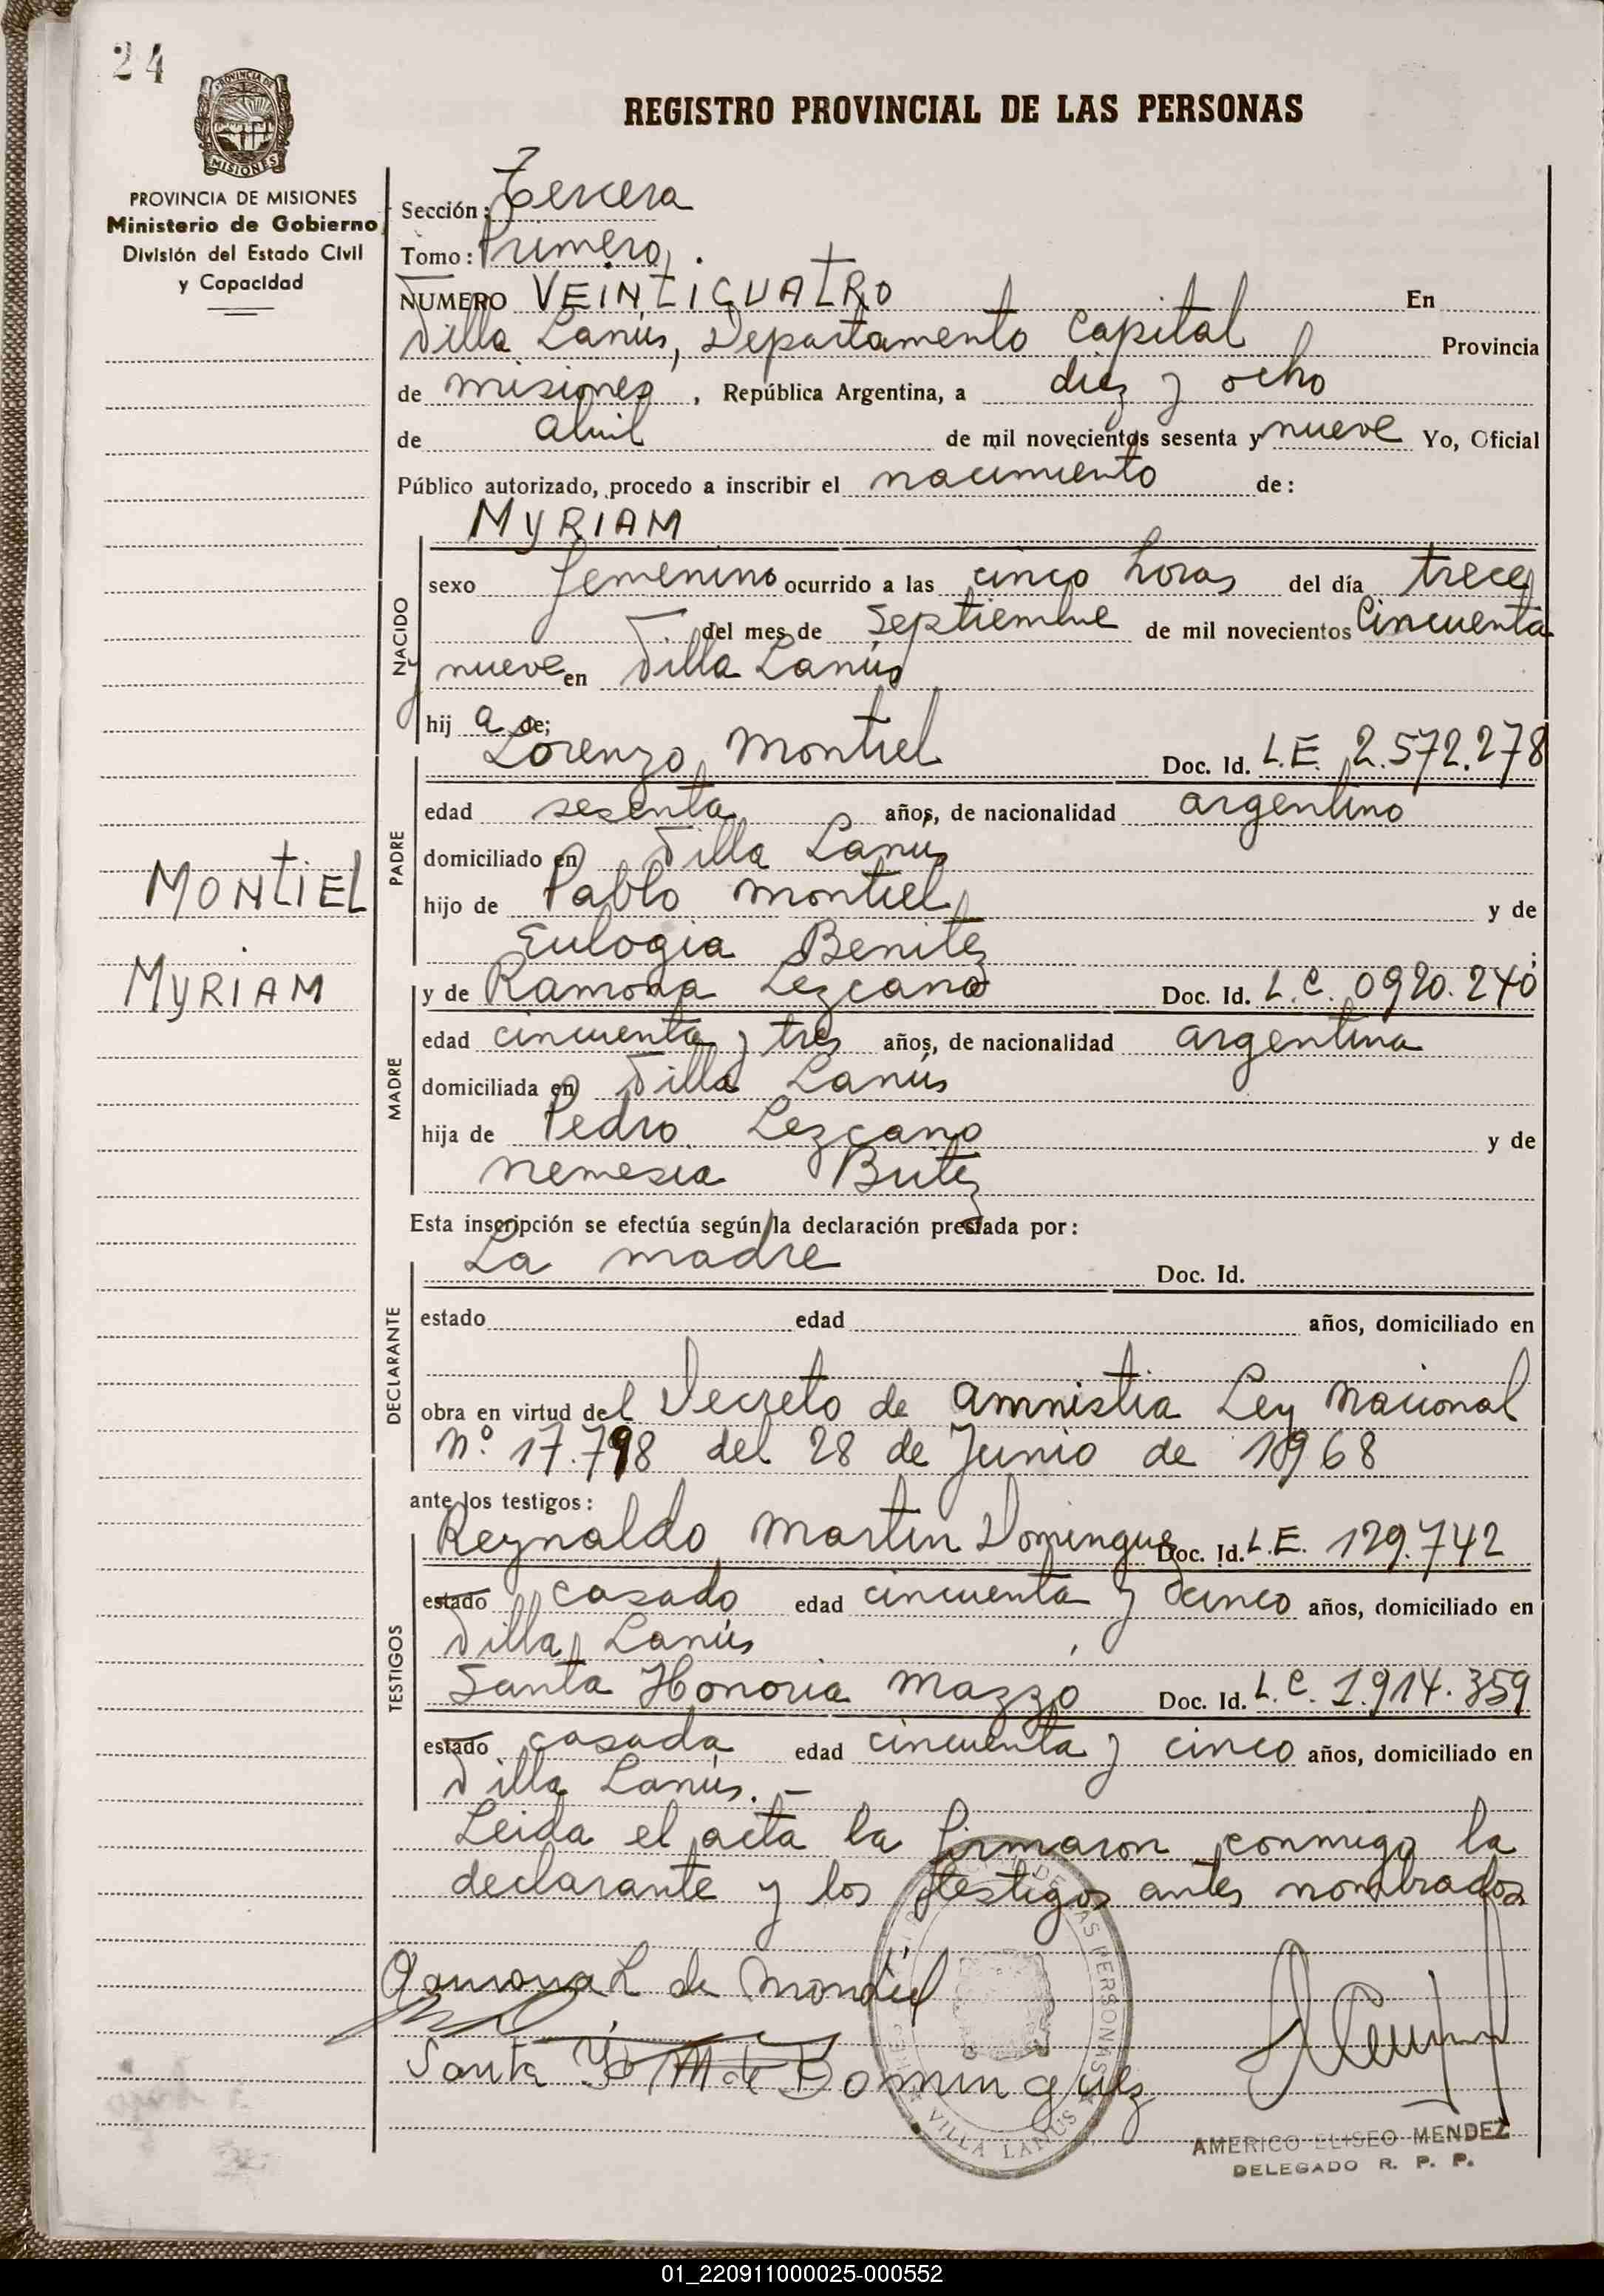 24
PROVINCIA DE
MISIONES
REGISTRO PROVINCIAL DE LAS PERSONAS
PROVINCIA DE MISIONES
Ministerio de Gobierno
División del Estado Civil
y Capacidad
Sección: Tercera
Tomo: Primero.
NUMERO VEINTICUATRO En
Villa Lanús, Departamento Capital Provincia
de misiones, República Argentina, a diez y ocho
de abril de mil novecientos sesenta y nueve Yo, Oficial
Público autorizado, procedo a inscribir el nacimiento de:
MYRIAM
NACIDO
sexo femenino ocurrido a las cinco horas del día trece
del mes de Septiembre de mil novecientos Cincuenta
y nueve en Villa Lanús
hij a de;
Lorenzo Montiel Doc. Id. L.E. 2.572.278
PADRE
edad sesenta años, de nacionalidad argentino
domiciliado en Villa Lanus
hijo de Pablo Montiel y de
Eulogia Benitez;
MONTIEL
MYRIAM
y de Ramona Lezcano Doc. Id. L.C. 0920.240
MADRE
edad cincuenta y tres años, de nacionalidad argentina
domiciliada en Villa Lanús
hija de Pedro Lezcano y de
Nemesia Britez
Esta inscripción se efectúa según la declaración prestada por:
La madre Doc. Id.
DECLARANTE
estado edad años, domiciliado en
obra en virtud del Decreto de amnistia Ley Nacional
Nº 17.798 del 28 de Junio de 1968
ante los testigos:
TESTIGOS
Reynaldo Martin Dominguez Doc. Id. L.E. 129.742
estado casado edad cincuenta y cinco años, domiciliado en
Villa Lanús
Santa Honoria Mazzo Doc. Id. L.C. 1.914.359
estado casada edad cincuenta y cinco años, domiciliado en
Villa Lanús.-
Leida el acta la firmaron conmigo la
declarante y los testigos antes nombrados
Ramona L de Montiel
Santa H M de Dominguez
DE LAS PERSONAS
VILLA LANUS
AMERICO ELISEO MENDEZ
DELEGADO R. P. P.
01_220911000025-000552